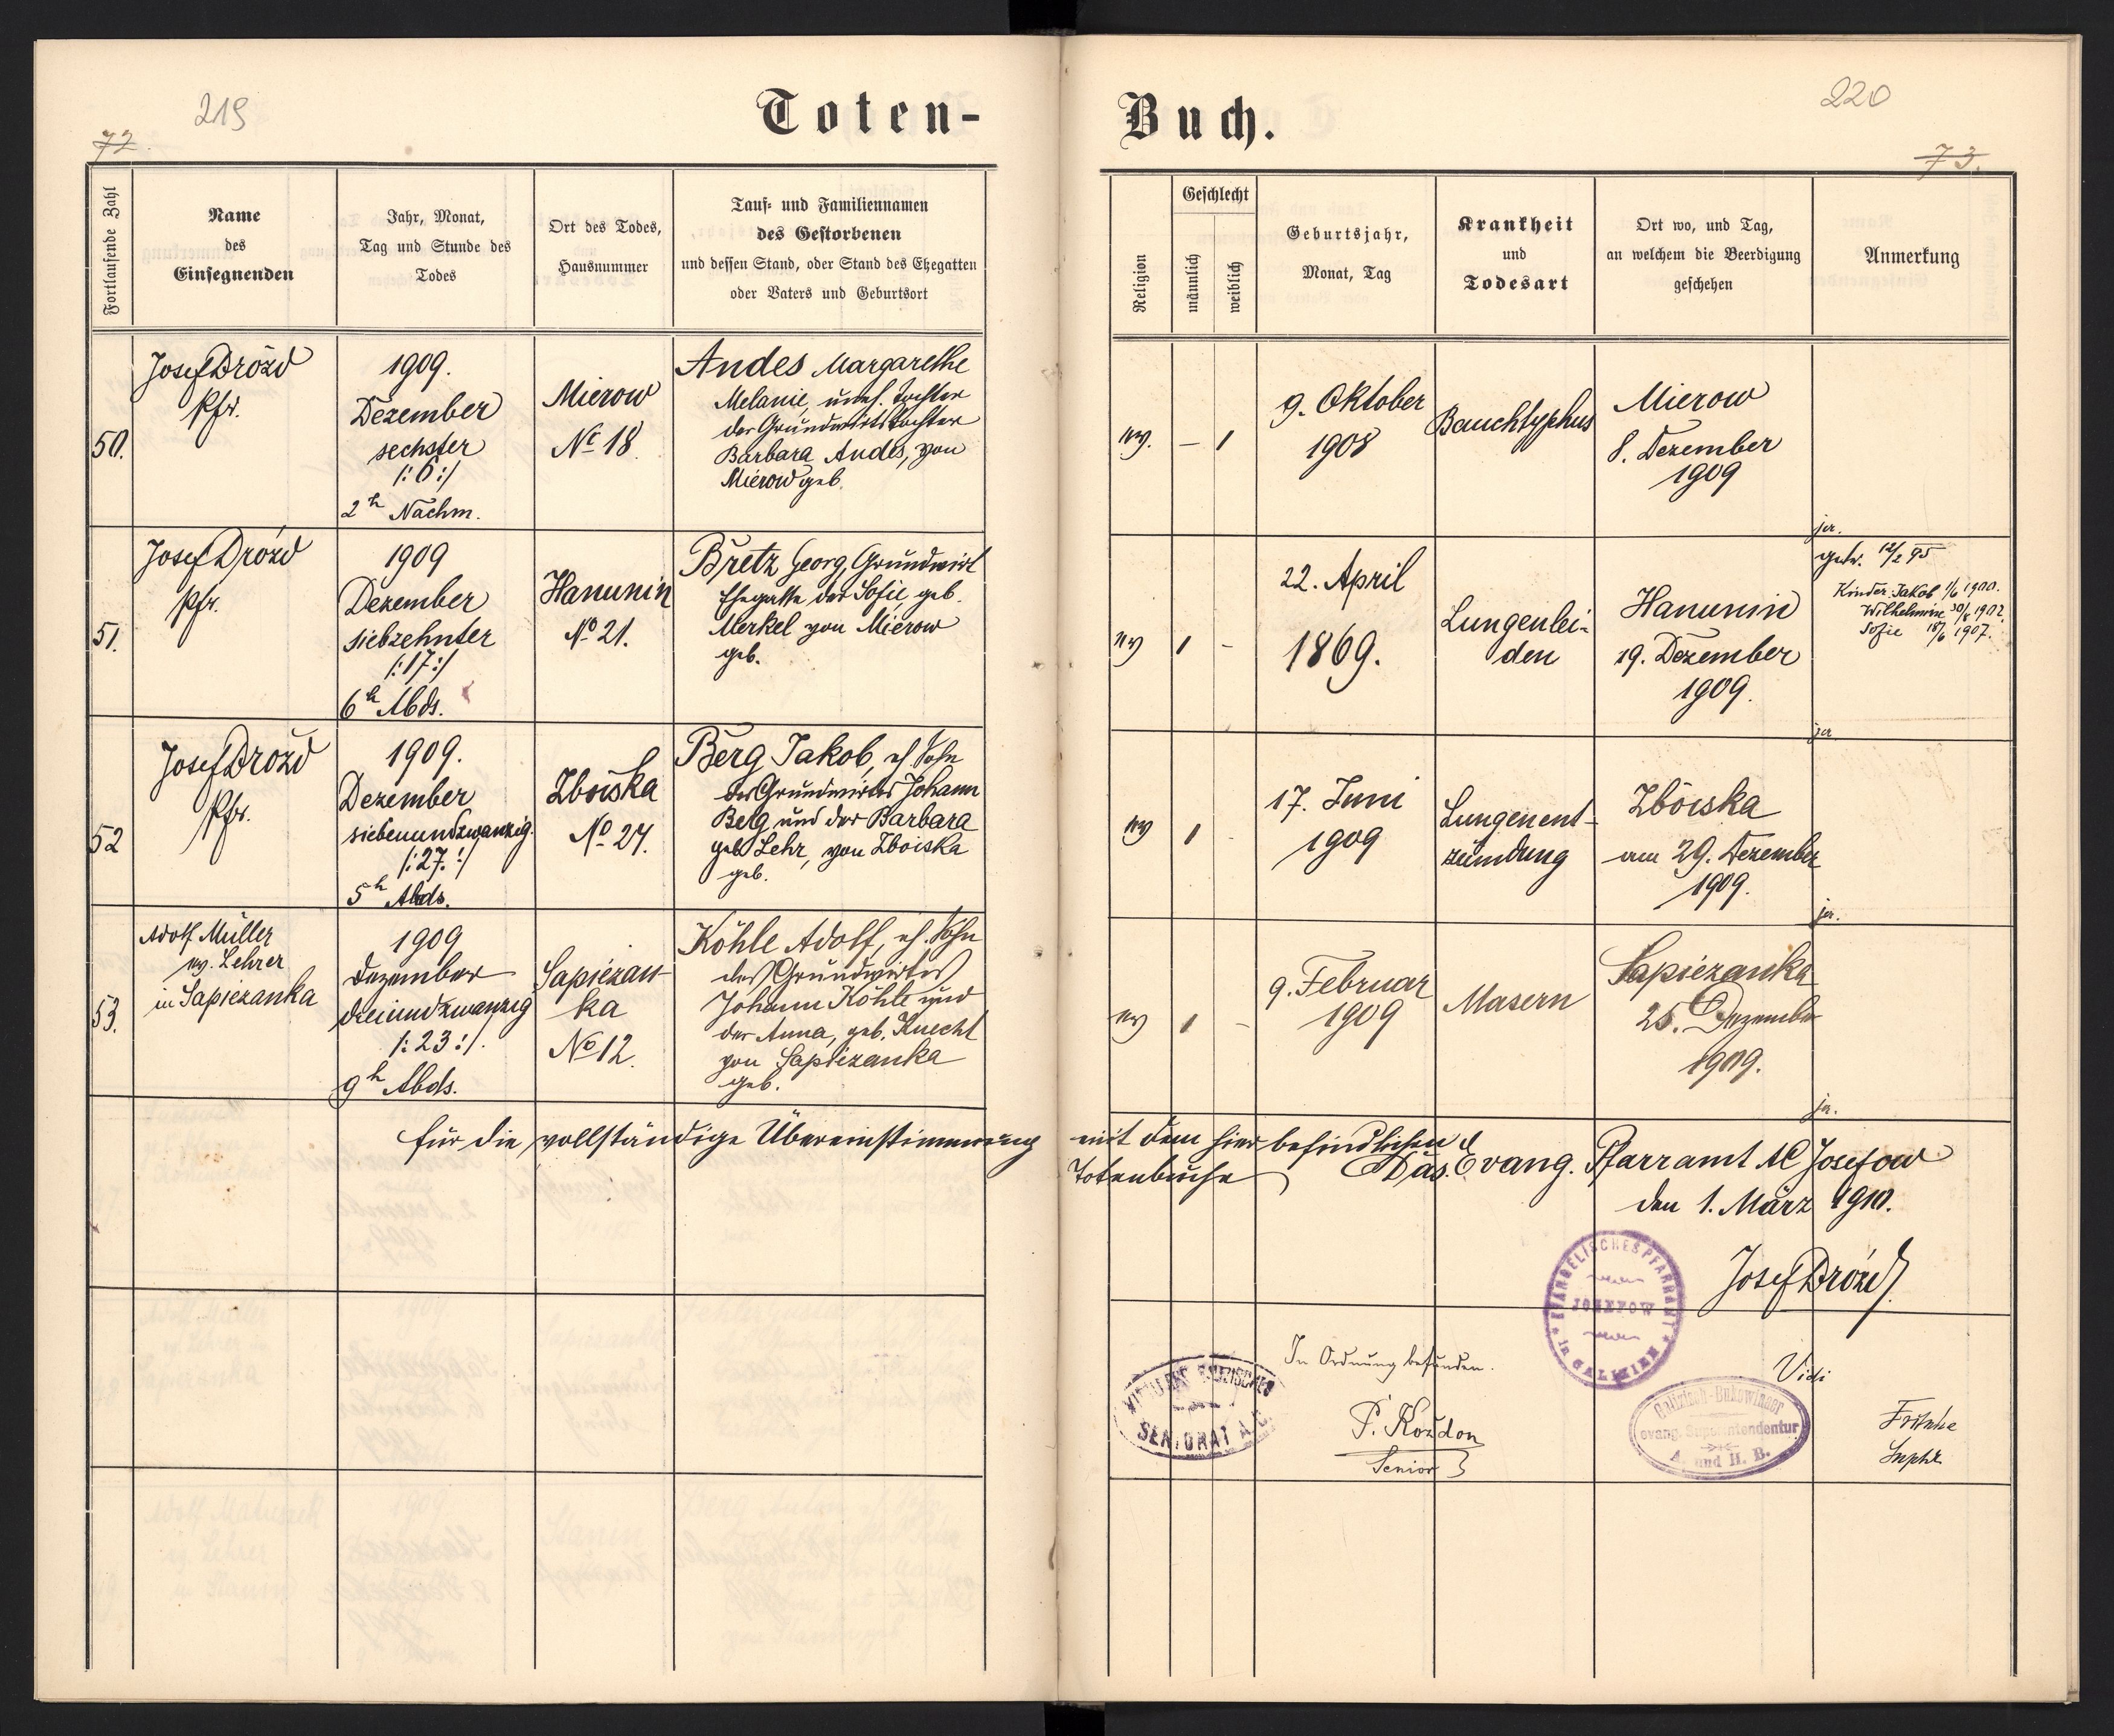 219
72.
Toten-
Fortlaufende Zahl
Name
des
Einsegnenden
Jahr, Monat,
Tag und Stunde des
Todes
Ort des Todes,
Hausnummer
Tauf- und Familiennamen
des Gestorbenen
und dessen Stand, oder Stand des Ehegatten
oder Vaters und Geburtsort
50.
Josef Drózd
Pfr.
1909.
Dezember
sechster
/:6:/
2h Nachm.
Mierow
No 18
Andes Margarethe
Melanie, unehl. Tochter
der Grundwirtstochter
Barbara Andes, von
Mierow geb.
51.
Josef Drózd
Pfr.
1909
Dezember
siebzehnter
/:17:/
6h Abds.
Hanunin
No 21.
Bretz Georg, Grundwirt
Ehegatte der Sofie, geb.
Merkel von Mierow
geb.
52
Josef Drózd
Pfr.
1909.
Dezember
siebenundzwanzig.
/:27.:/
5h Abds.
Zboiska
No 24.
Berg Jakob, eh. Sohn
des Grundwirtes Johann
Berg und der Barbara
geb. Lehr, von Zboiska
geb.
53.
Adolf Müller
ev. Lehrer
in Sapiezanka
1909
Dezember
dreiundzwanzig
/:23:/.
9h Abds.
Sapiezan-
ka
No 12.
Köhle Adolf, eh. Sohn
des Grundwirtes
Johann Köhle und
der Anna, geb. Knecht
von Sapiezanka
geb.
für die vollständige Übereinstimmung
220
73.
Buch.
Religion
Geschlecht
männlich
weiblich
Geburtsjahr,
Monat, Tag
Krankheit
und
Todesart
Ort wo, und Tag,
an welchem die Beerdigung
geschehen
Anmerkung
ev.
— 1
9. Oktober
1908
Bauchtyphus
Mierow
8. Dezember
1909
ev
1 -
22. April
1869.
Lungenlei-
den
Hanunin
19. Dezember
1909.
getr. 12/2 95
Kinder: Jakob 1/6 1900.
Wilhelmine 30/8 1902.
Sofie 18/6 1907.
ev
1 -
17. Juni
1909
Lungenent-
zündung
Zboiska
am 29. Dezember
1909.
ev
1 -
9. Februar
1909
Masern
Sapiezanka
25. Dezember
1909.
mit dem hier befindlichen
Totenbuche
Das Evang. Pfarramt AC Josefow
den 1. März 1910.
Josef Drózd
EVANGELISCHES PFARRAMT
JOSEFOW
in GALIZIEN
In Ordnung befunden.
SENIORAT A.C.
P. Kozdon
Senior
Vidi
Galizisch-Bukowinaer
evang. Superintendentur
A. und H. B.
Fritsche
Suptr.